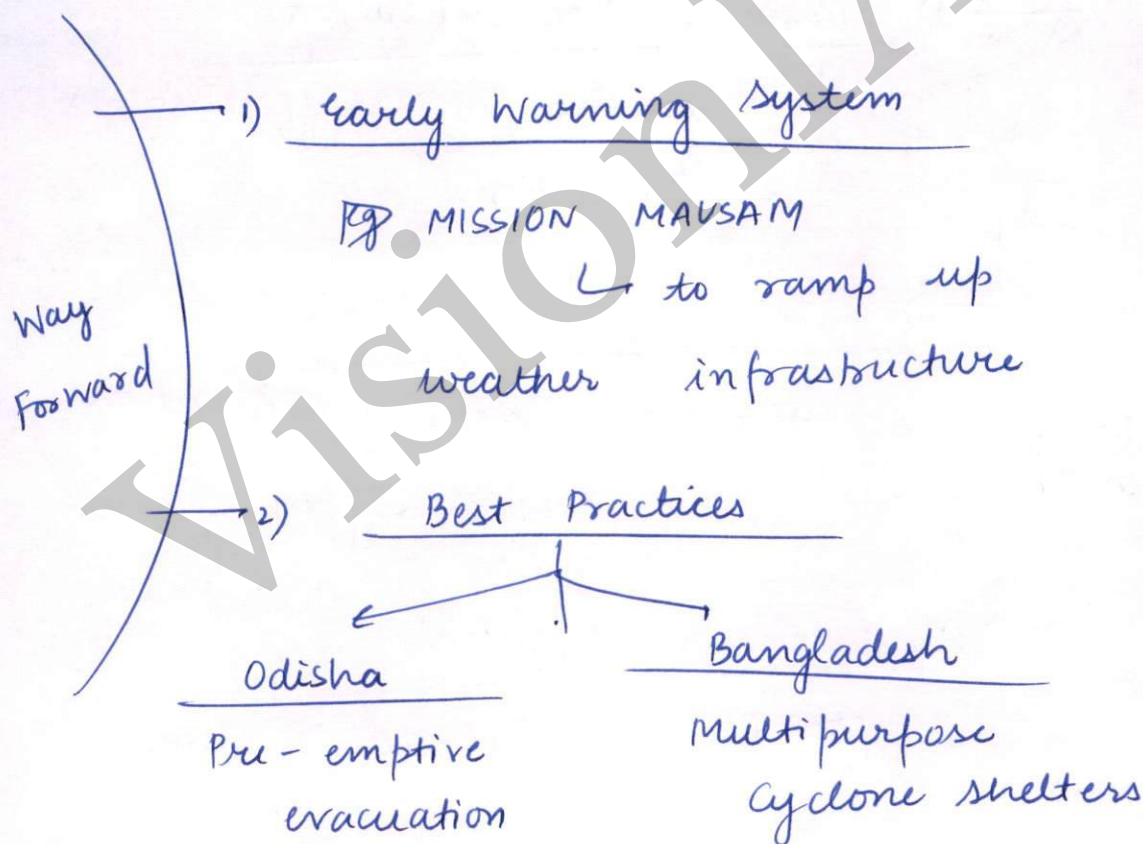 1) Early Warning System
Eg MISSION MAUSAM
to ramp up
weather infrastructure
Way
Forward
2) Best Practices
Odisha
Pre-emptive
evacuation
Bangladesh
Multipurpose
Cyclone shelters
VisionIA